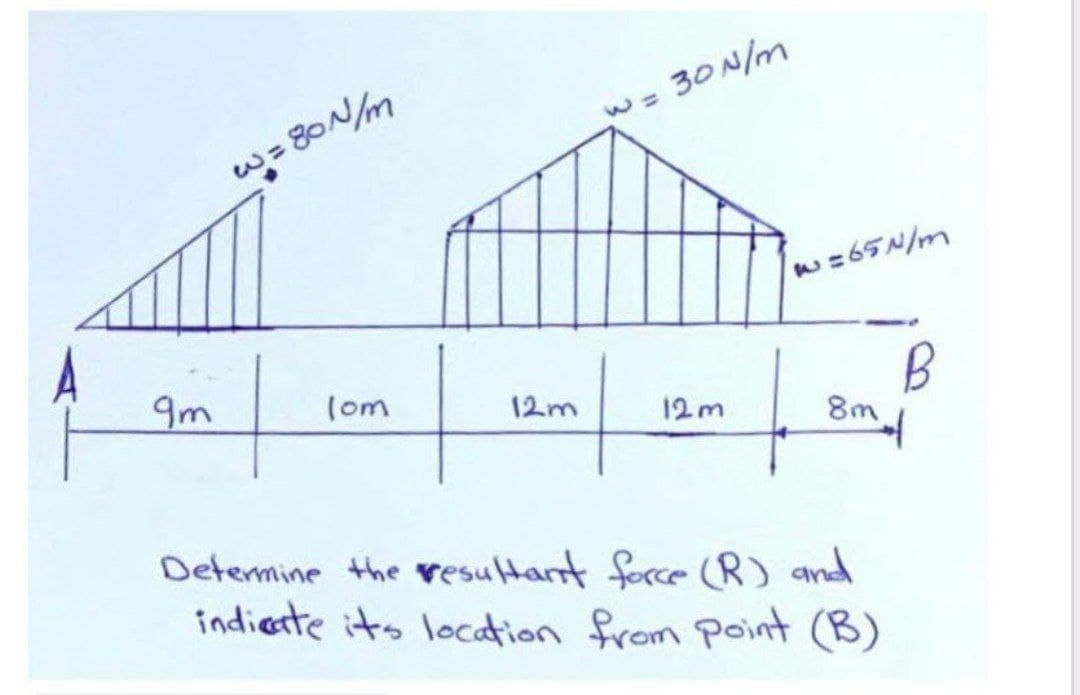 w = 80 N/m
w = 30 N/m
w = 65 N/m
A
B
9m
10m
12m
12m
8m
Determine the resultant force (R) and
indicate its location from point (B)